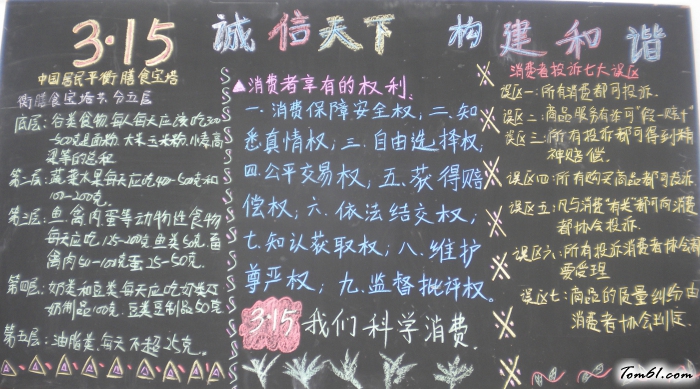 3·15 诚信天下 构建和谐
中国居民平衡膳食宝塔
衡膳食宝塔共分五层
底层:谷类食物,每人每天应该吃300
-500克是面粉,大米玉米粉,小麦高
梁等的总和
第二层:蔬菜水果每天应吃400-500克和
100-200克.
第三层:鱼禽肉蛋等动物性食物
每天应吃125-200克鱼类50克,畜
禽肉50-100克蛋25-50克.
第四层:奶类和豆类每天应吃奶类及
奶制品100克.豆类豆制品50克
第五层:油脂类,每天不超25克.
▲消费者享有的权利.
一.消费保障安全权;二.知
悉真情权;三.自由选择权;
四.公平交易权;五.获得赔
偿权;六.依法结交权;
七.知认获取权;八.维护
尊严权;九.监督批评权。
3·15 我们科学消费.
消费者投诉七大误区
误区一:所有消费都可投诉.
误区二:商品服务有诈可"假一赔十"
误区三:所有投诉都可得到精
神赔偿.
误区四:所有购买商品都可投诉
误区五:凡与消费"有关"都可向消费
都协会投诉.
误区六:所有投诉消费者协会都
要受理
误区七:商品的质量纠纷由
消费者协会判定
Tom61.com